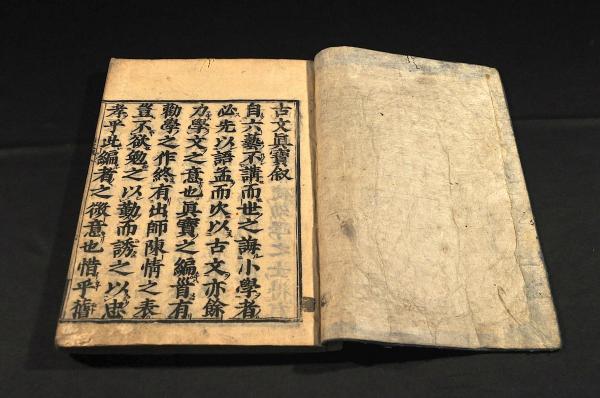 古文眞寶叙
自六藝不講而世之誨小學者
必先以語孟而次以古文亦餘
力學文之意也眞寶之編首有
勸學之作終有出師陳情之表
豈不欲勉之以勤而誘之以忠
孝乎此編者之微意也惜乎舊